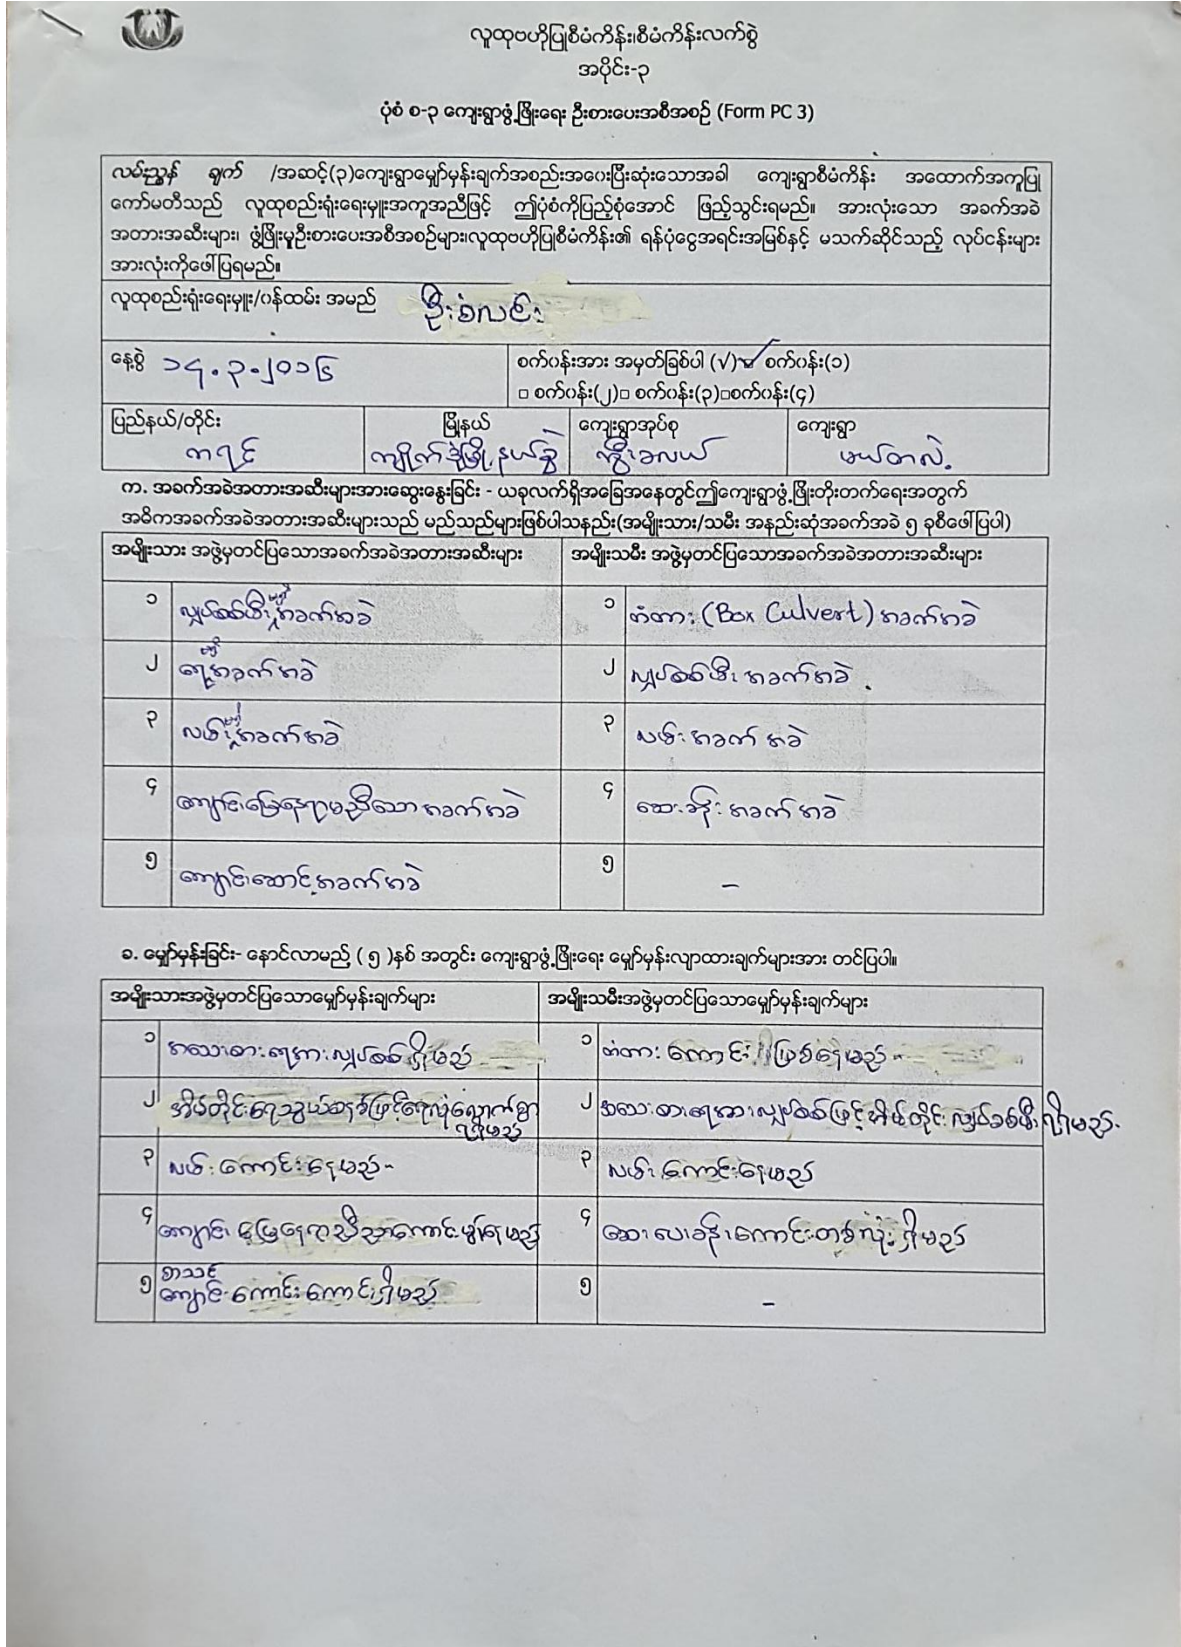 လူထုဗဟိုပြုစီမံကိန်း၊စီမံကိန်းလက်စွဲ
အပိုင်း-၃
ပုံစံ စ-၃ ကျေးရွာဖွံ့ဖြိုးရေး ဦးစားပေးအစီအစဉ် (Form PC 3)
လမ်းညွှန် ချက် /အဆင့်(၃)ကျေးရွာမျှော်မှန်းချက်အစည်းအဝေးပြီးဆုံးသောအခါ ကျေးရွာစီမံကိန်း အထောက်အကူပြု
ကော်မတီသည် လူထုစည်းရုံးရေးမှူးအကူအညီဖြင့် ဤပုံစံကိုပြည့်စုံအောင် ဖြည့်သွင်းရမည်။ အားလုံးသော အခက်အခဲ
အတားအဆီးများ၊ ဖွံ့ဖြိုးမှုဦးစားပေးအစီအစဉ်များ၊လူထုဗဟိုပြုစီမံကိန်း၏ ရန်ပုံငွေအရင်းအမြစ်နှင့် မသက်ဆိုင်သည့် လုပ်ငန်းများ
အားလုံးကိုဖေါ်ပြရမည်။
လူထုစည်းရုံးရေးမှူး/ဝန်ထမ်း အမည် ဦးစံလင်း
နေ့စွဲ ၁၄.၃.၂၀၁၆ စက်ဝန်းအား အမှတ်ခြစ်ပါ (√) ☑ စက်ဝန်း(၁)
□ စက်ဝန်း(၂)□ စက်ဝန်း(၃)□စက်ဝန်း(၄)
ပြည်နယ်/တိုင်း မြို့နယ် ကျေးရွာအုပ်စု ကျေးရွာ
ကရင် ကျိုက်ဒုံမြို့နယ်ခွဲ မယ်တလဲ့
က. အခက်အခဲအတားအဆီးများအားဆွေးနွေးခြင်း - ယခုလက်ရှိအခြေအနေတွင်ဤကျေးရွာဖွံ့ဖြိုးတိုးတက်ရေးအတွက်
အဓိကအခက်အခဲအတားအဆီးများသည် မည်သည်များဖြစ်ပါသနည်း(အမျိုးသား/သမီး အနည်းဆုံအခက်အခဲ ၅ ခုစီဖေါ်ပြပါ)
အမျိုးသား အဖွဲ့မှတင်ပြသောအခက်အခဲအတားအဆီးများ အမျိုးသမီး အဖွဲ့မှတင်ပြသောအခက်အခဲအတားအဆီးများ
၁ လျှပ်စစ်မီးမရှိအခက်အခဲ ၁ တံတား (Box Culvert) အခက်အခဲ
၂ ရေမရှိအခက်အခဲ ၂ လျှပ်စစ်မီးအခက်အခဲ
၃ လမ်းမရှိအခက်အခဲ ၃ လမ်းအခက်အခဲ
၄ ကျောင်းမြေနေရာမညီသောအခက်အခဲ ၄ ဆေးခန်းအခက်အခဲ
၅ ကျောင်းဆောင်အခက်အခဲ ၅ –
ခ. မျှော်မှန်းခြင်း- နောင်လာမည့် ( ၅ )နှစ် အတွင်း ကျေးရွာဖွံ့ဖြိုးရေး မျှော်မှန်းလျာထားချက်များအား တင်ပြပါ။
အမျိုးသားအဖွဲ့မှတင်ပြသောမျှော်မှန်းချက်များ အမျိုးသမီးအဖွဲ့မှတင်ပြသောမျှော်မှန်းချက်များ
၁ အသေးစားရေအားလျှပ်စစ်ရှိမည် ၁ တံတားကောင်း ဖြစ်နေမည်-
၂ အိမ်တိုင်းရေသွယ်စနစ်ဖြင့်ရေလုံလောက်စွာ ရရှိမည် ၂ အသေးစားရေအားလျှပ်စစ်ဖြင့်အိမ်တိုင်းလျှပ်စစ်မီးရရှိမည်-
၃ လမ်းကောင်းနေမည်- ၃ လမ်းကောင်းနေမည်
၄ ကျောင်းမြေနေရာညီညာကောင်းမွန်နေမည် ၄ ဆေးပေးခန်းကောင်းတစ်လုံးရှိမည်
၅ စာသင်
ကျောင်းကောင်းကောင်းရှိမည် ၅ –